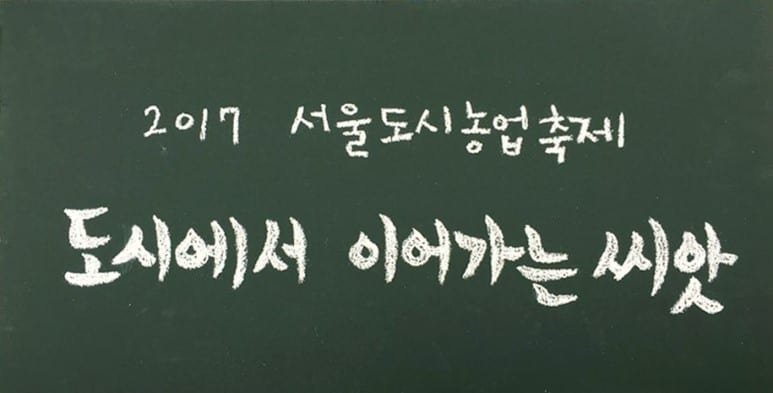 2017 서울도시농업축제
도시에서 이어가는 씨앗